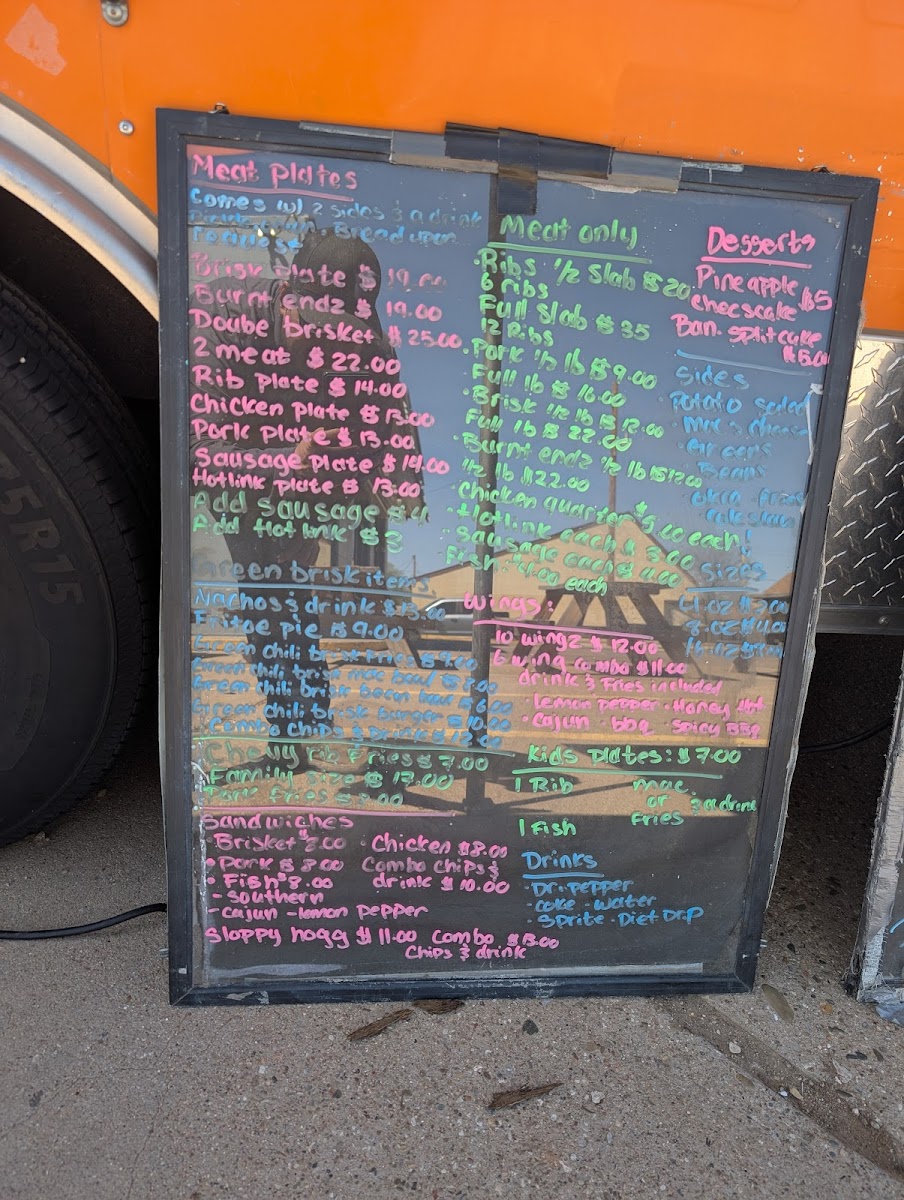 Meat Plates
Comes w/ 2 sides & a drink
Bread upon
request
Brisk plate $ 19.00
Burnt endz $ 19.00
Doube brisket $ 25.00
2 meat $ 22.00
Rib Plate $ 14.00
Chicken Plate $ 13.00
Pork Plate $ 13.00
Sausage Plate $ 14.00
Hotlink Plate $ 13.00
Add Sausage $ 4
Add Hot link $ 3
Green brisk items
Nachos & drink $ 13.00
Fritoe pie $ 9.00
Green chili brisk Fries $ 9.00
Green chili brisk mac bowl $ 8.00
Green chili brisk bean bowl $ 6.00
Green chili brisk burger $ 10.00
Combo chips & Drink $ 12.00
Chewy rib Fries $ 7.00
Family Size $ 17.00
Pork Fries $ 7.00
Sandwiches
• Brisket $ 8.00
• Pork $ 8.00
• Fish $ 8.00
- Southern
- Cajun - lemon pepper
• Chicken $ 8.00
Combo chips &
drink $ 10.00
Sloppy hogg $ 11.00 Combo $ 13.00
Chips & drink
Meat only
• Ribs 1/2 Slab $ 20
6 ribs
Full Slab $ 35
12 Ribs
• Pork 1/2 lb $ 9.00
Full lb $ 16.00
• Brisk 1/2 lb $ 12.00
Full lb $ 22.00
• Burnt endz 1/2 lb $ 12.00
1/2 lb $ 22.00
• Chicken quarter $ 5.00 each!
• Hotlink each $ 3.00
• Sausage each $ 4.00
Fish $ 4.00 each
Wings:
10 wingz $ 12.00
6 wing combo $ 11.00
drink & Fries included
• Lemon pepper • Honey Hot
• Cajun • bbq • Spicy BBQ
Kids Plates: $ 7.00
1 Rib
1 Fish
mac
or
Fries
& a drink
Drinks
• Dr. pepper
• coke • water
• Sprite • Diet Dr. P
Desserts
Pineapple
Checscake $5
Ban. Split cake
$ 5.00
Sides
• Potato Salad
• Mac & cheese
• Greens
Beans
• Okra • Fries
• Coleslaw
Sizes
4 oz
8 oz $ 4.00
16 oz
5R15